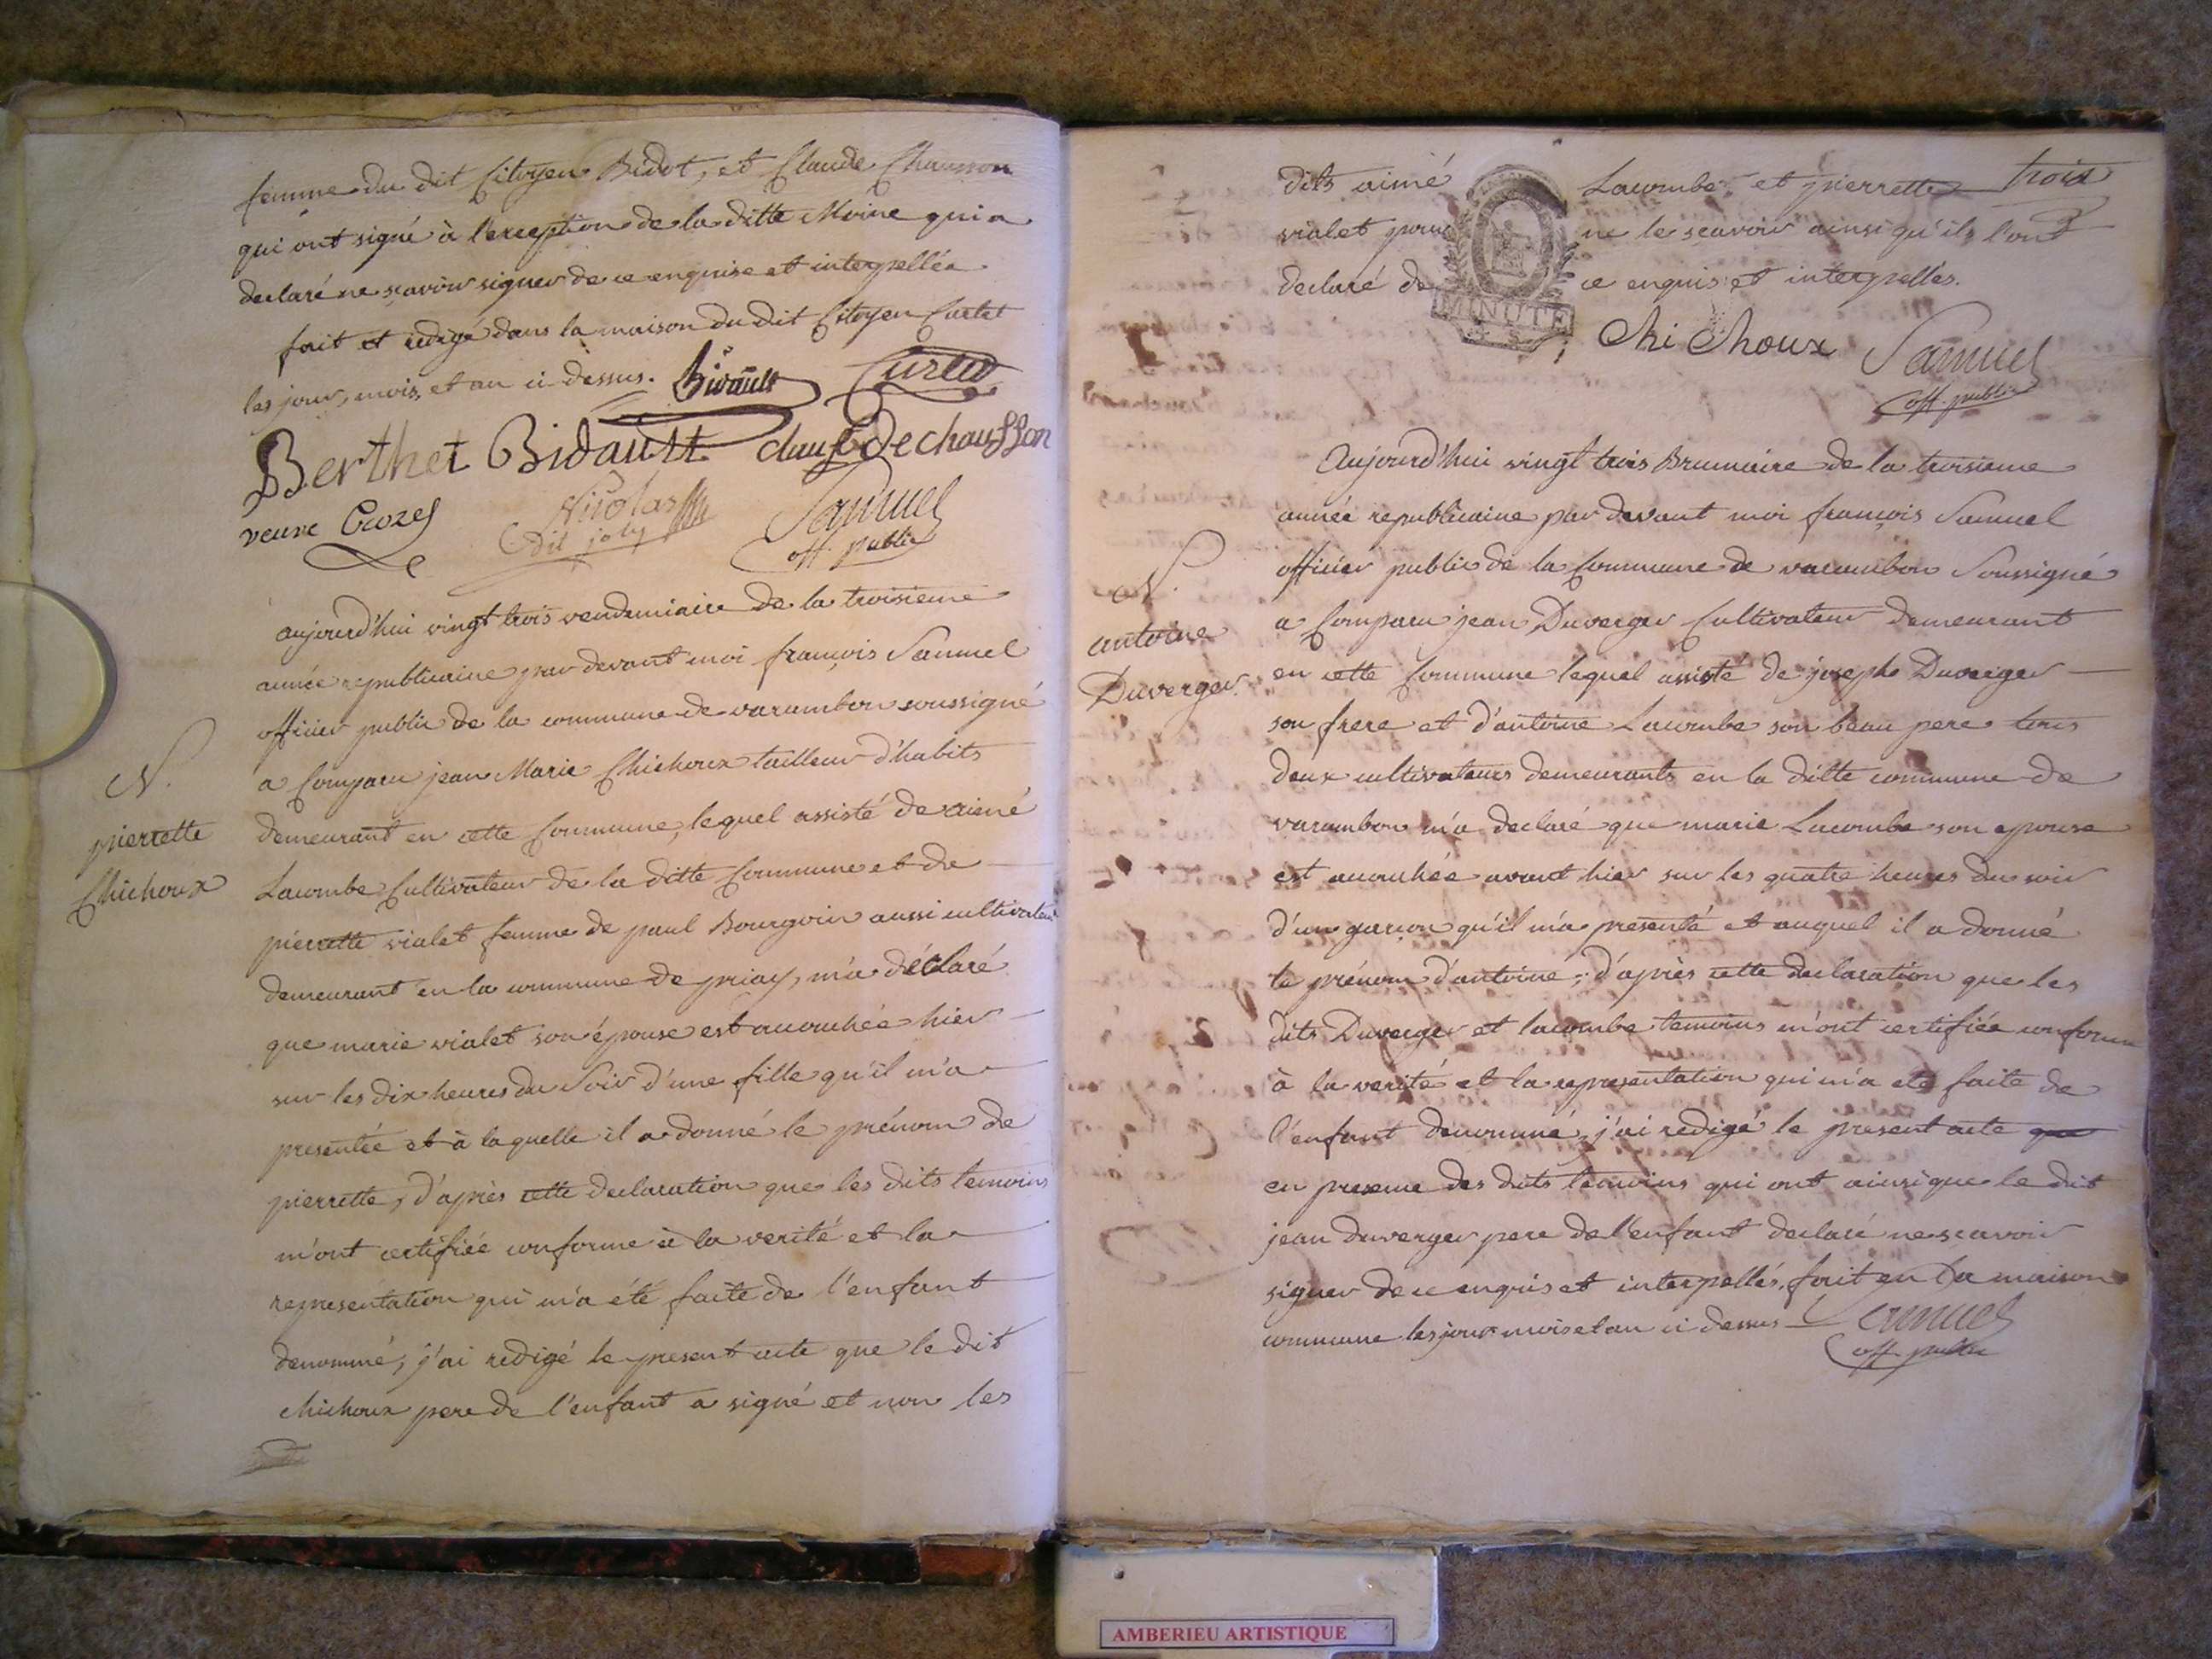 femme du dit Citoyen Bidot, et Claude Chausson
qui ont signé à l'exception de la ditte Moine qui a
declaré ne scavoir signer de ce enquise et interpellée
fait et redigé dans la maison du dit Citoyen Curtet
les jour, mois, et an ci dessus. Bidault Curtet
Berthet Bidault claude chausson
veuve Crozet Nicolas Samuel
dit joly off. public
N.
pierrette
Chichoux
aujourd'hui vingt trois vendemiaire de la troisieme
année republicaine par devant moi françois Samuel
officier public de la commune de varambon soussigné
a Comparu jean Marie Chichoux tailleur d'habits
demeurant en cette Commune, lequel assisté de aimé
Lacombe Cultivateur de la ditte Commune et de
pierrette vialet femme de paul Bourgoin aussi cultivateur
demeurant en la commune de priay, m'a déclaré
que marie vialet son épouse est accouchée hier
sur les dix heures du Soir d'une fille qu'il m'a
presentée et à laquelle il a donné le prénom de
pierrette, d'après cette declaration que les dits temoins
m'ont certifiée conforme à la verité et la
representation qui m'a été faite de l'enfant
denommé, j'ai redigé le present acte que le dit
chichoux pere de l'enfant a signé et non les
dits aimé Lacombe et pierrette trois
vialet pour ne le scavoir ainsi qu'ils l'ont
declaré de ce enquis et interpellés.
MINUTE
Chi Choux Samuel
off. public
N.
antoine
Duverger
Aujourd'hui vingt trois Brumaire de la troisieme
année republicaine par devant moi françois Samuel
officier public de la Commune de varambon Soussigné
a Comparu jean Duverger Cultivateur demeurant
en cette Commune lequel assisté de joseph Duverger
son frere et d'antoine Lacombe son beau pere tous
deux cultivateurs demeurants en la ditte commune de
varambon m'a declaré que marie Lacombe son epouse
est accouchée avant hier sur les quatre heures du soir
d'un garçon qu'il m'a presenté et auquel il a donné
le prénom d'antoine; d'après cette declaration que les
dits Duverger et lacombe temoins m'ont certifiée conforme
à la verité et la representation qui m'a eté faite de
l'enfant denommé, j'ai redigé le present acte que
en presence des dits temoins qui ont ainsi que le dit
jean duverger pere de l'enfant declaré ne scavoir
signer de ce enquis et interpellés, fait en la maison
commune les jour mois et an ci dessus Samuel
off. public
AMBERIEU ARTISTIQUE